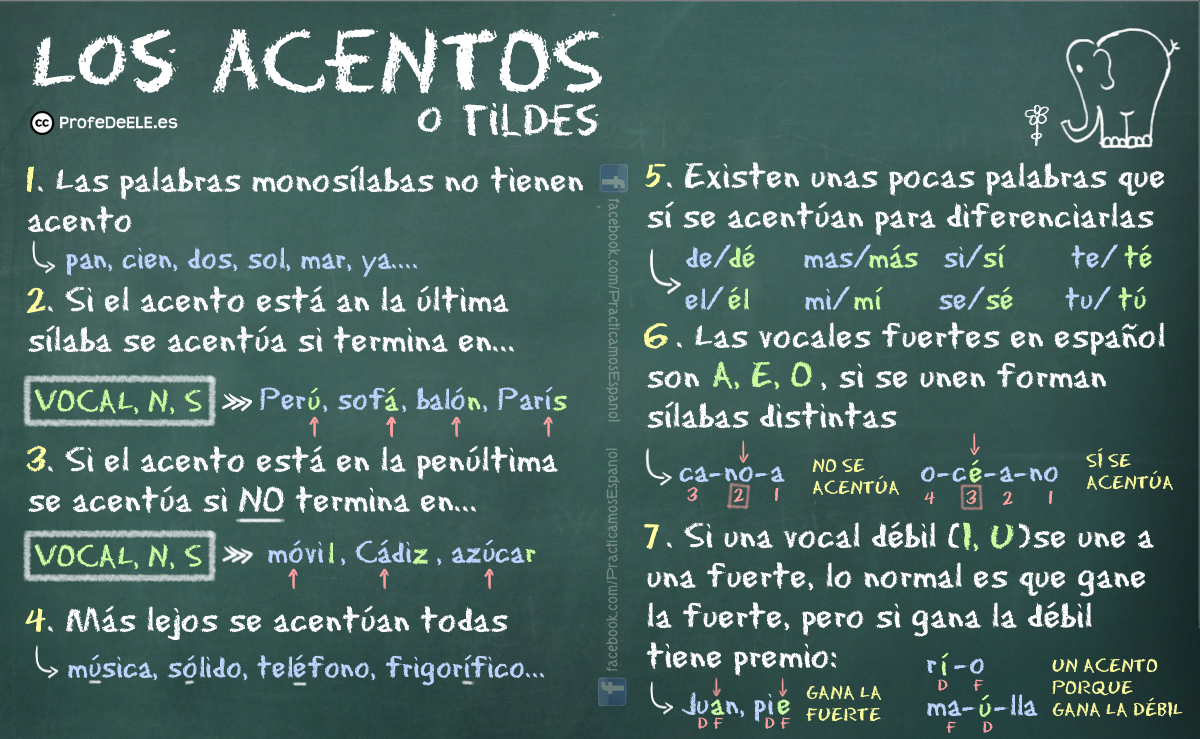 LOS ACENTOS
O TILDES
cc ProfeDeELE.es
1. Las palabras monosílabas no tienen
acento
pan, cien, dos, sol, mar, ya....
2. Si el acento está an la última
sílaba se acentúa si termina en...
VOCAL, N, S >>> Perú, sofá, balón, París
3. Si el acento está en la penúltima
se acentúa si NO termina en...
VOCAL, N, S >>> móvil, Cádiz, azúcar
4. Más lejos se acentúan todas
música, sólido, teléfono, frigorífico...
facebook.com/PracticamosEspanol
facebook.com/PracticamosEspanol
5. Existen unas pocas palabras que
sí se acentúan para diferenciarlas
de/dé mas/más si/sí te/té
el/él mi/mí se/sé tu/tú
6. Las vocales fuertes en español
son A, E, O, si se unen forman
sílabas distintas
ca-no-a NO SE o-cé-a-no SÍ SE
3 2 1 ACENTÚA 4 3 2 1 ACENTÚA
7. Si una vocal débil (I, U)se une a
una fuerte, lo normal es que gane
la fuerte, pero si gana la débil
tiene premio:
Juan, pie GANA LA
D F D F FUERTE
rí-o UN ACENTO
D F PORQUE
ma-ú-lla GANA LA DÉBIL
F D